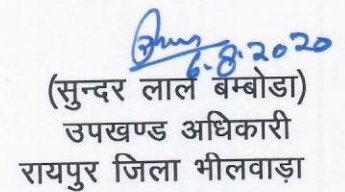 6.8.2020
(सुन्दर लाल बम्बोडा)
उपखण्ड अधिकारी
रायपुर जिला भीलवाड़ा